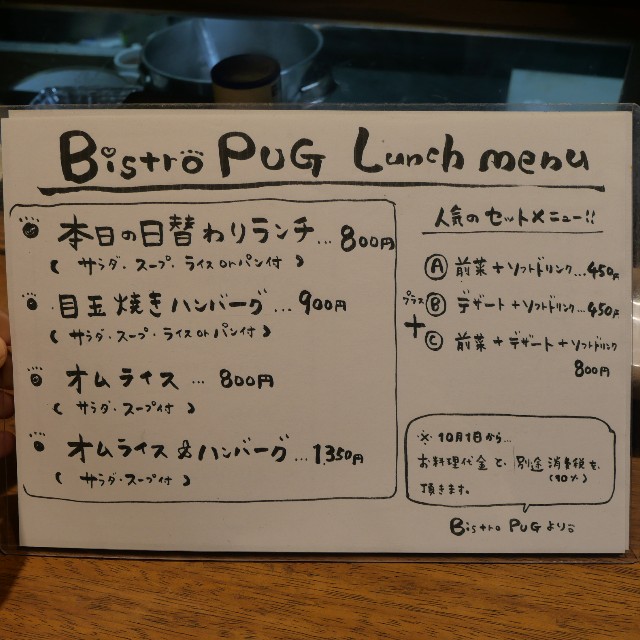 Bistro PUG Lunch menu
本日の日替わりランチ...800円
(サラダ・スープ・ライスorパン付)
目玉焼きハンバーグ...900円
(サラダ・スープ・ライスorパン付)
オムライス...800円
(サラダ・スープ付)
オムライス&ハンバーグ...1350円
(サラダ・スープ付)
人気のセットメニュー!!
プラス
+
Ⓐ 前菜+ソフトドリンク...450円
Ⓑ デザート+ソフトドリンク...450円
Ⓒ 前菜+デザート+ソフトドリンク
800円
※10月1日から...
お料理代金と、別途消費税を、
(10%)
頂きます。
Bistro PUGより